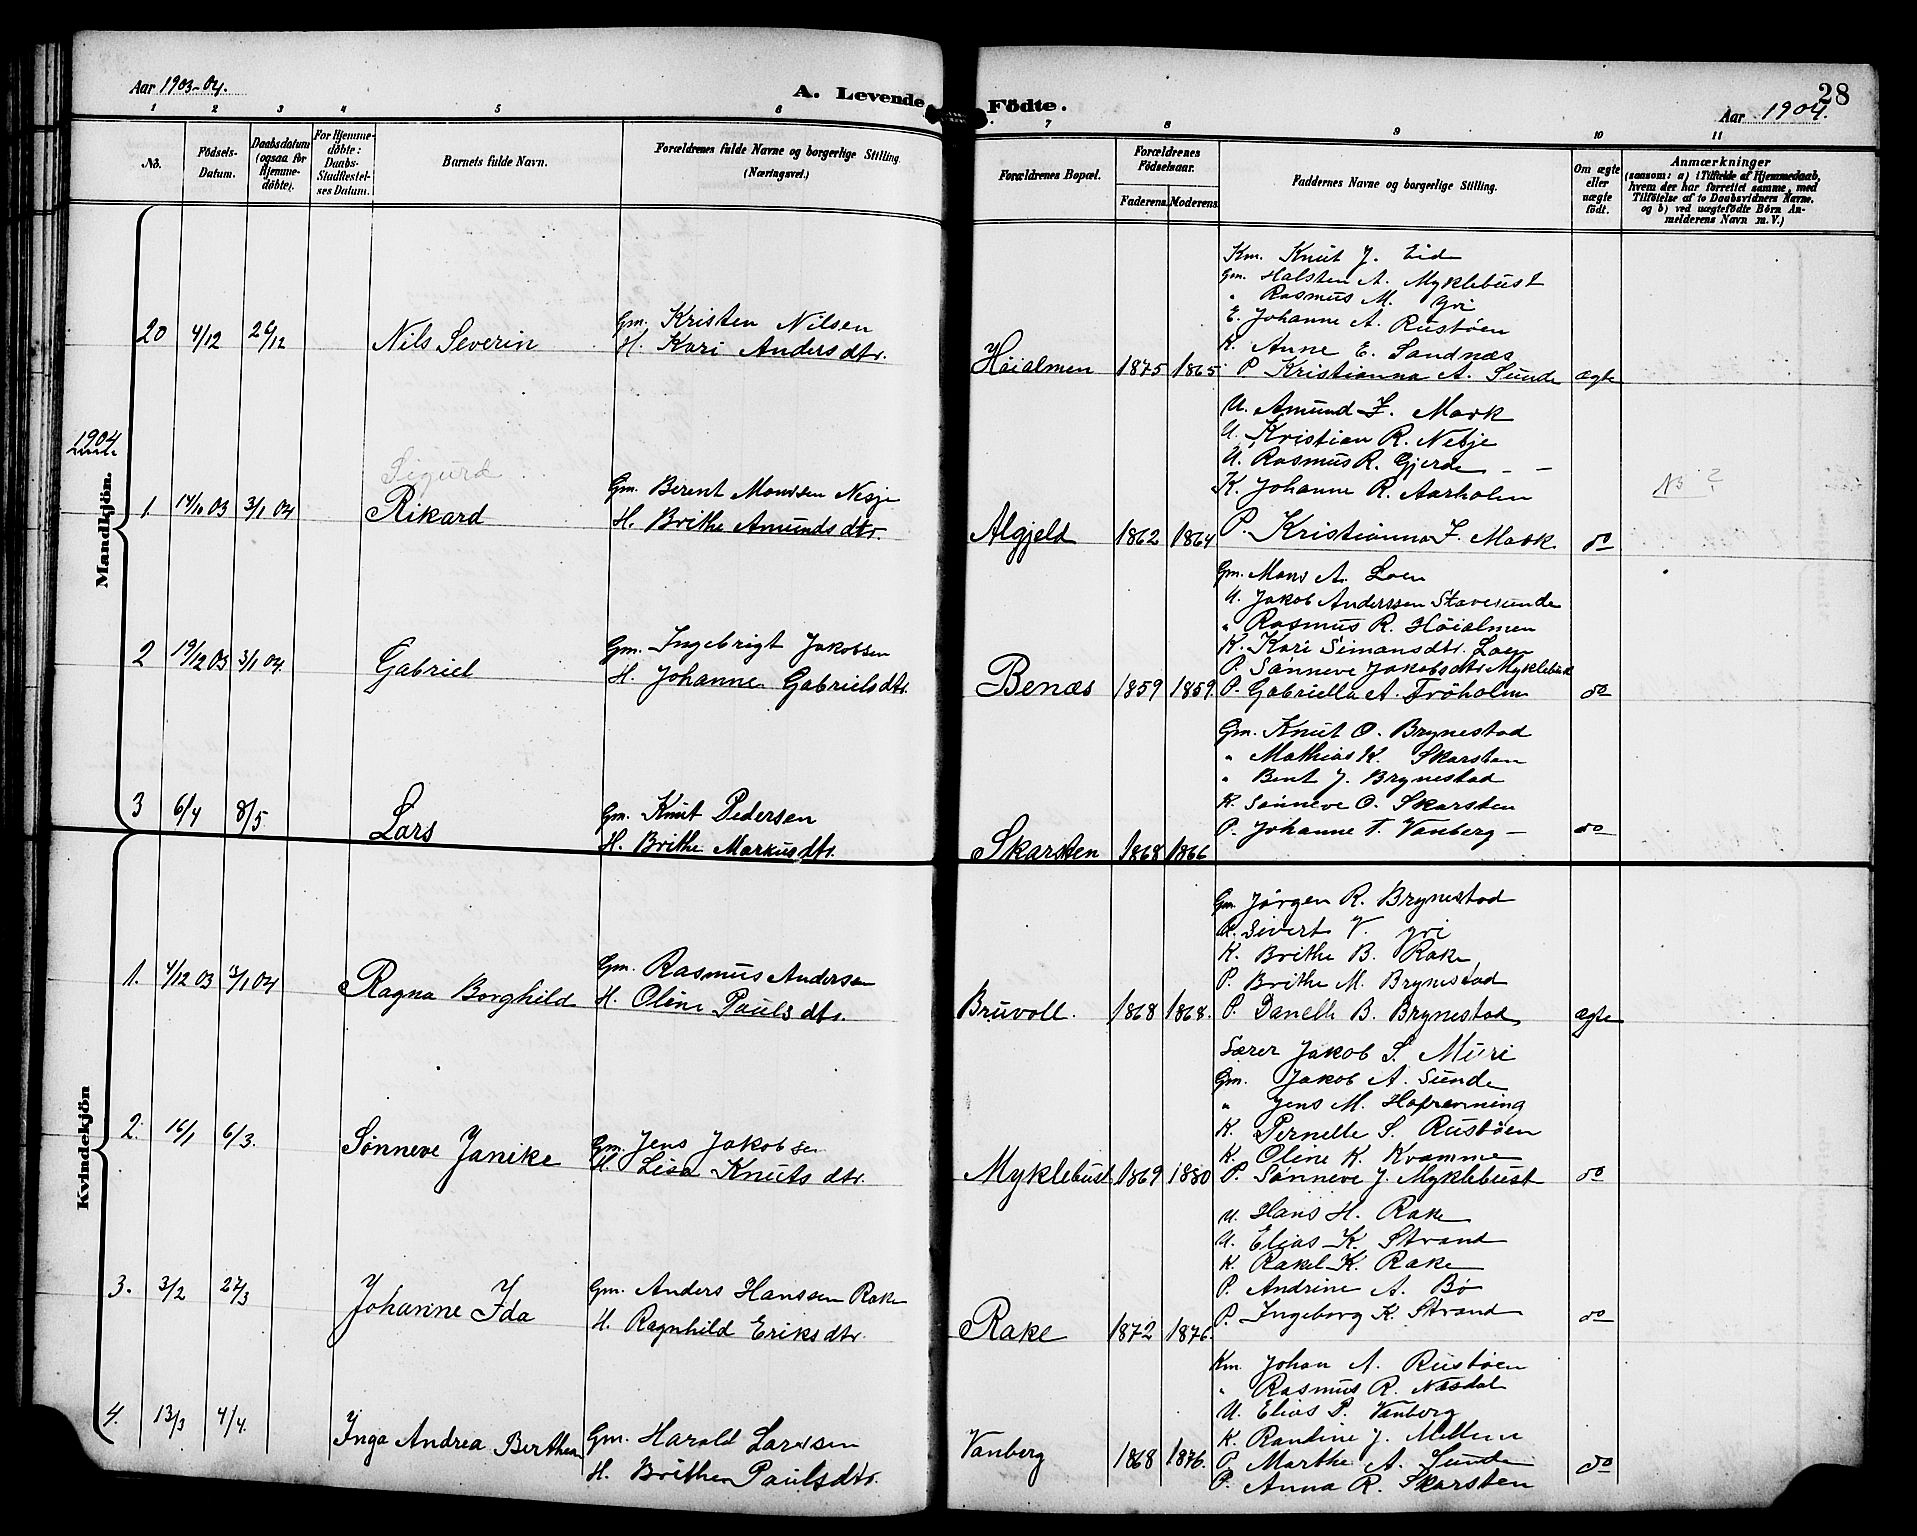 Aar 1903-04.
A. Levende Födte.
Aar 1904.
28
1 2 3 4 5 6 7 8 9 10 11
No.
Födsels-Datum.
Daabsdatum (ogsaa for Hjemme-döbte).
For Hjemme-döbte: Daabs-Stadfæstel-ses Datum.
Barnets fulde Navn.
Forældrenes fulde Navne og borgerlige Stilling. (Næringsvei.)
Forældrenes Bopæl.
Forældrenes Födselsaar.
Faderens. Moderens.
Faddernes Navne og borgerlige Stilling.
Om ægte eller uægte födt.
Anmærkninger
(saasom: a) i Tilfælde af Hjemmedaab, hvem der har forrettet samme, med Tilföielse af to Daabsvidners Navne. og b) ved uægtefödte Börn An-melderens Navn m. V.)
Mandkjön.
20 4/12 26/12 Nils Severin
Gm. Kristen Nilsen
H. Kari Andersdtr.
Höialmen 1875 1865
Km. Knut J. Eid
Gm. Halsten A. Myklebust
" Rasmus M. Gri
E. Johanne A. Rustöen
K. Anne E. Sandnæs
P. Kristianna A. Sunde
ægte
1904
Sigurd
1. 14/10 03 3/1 04 Rikard
Gm. Berent Monssen Nesje
H. Brithe Amundsdtr.
Algjeld 1862 1864
U. Amund Z. Mork
U. Kristian R. Nesje
U. Rasmus R. Gjerde - -
K. Johanne R. Aarholen
P. Kristianna Z. Mork
do
No ?
2 19/12 03 3/1 04. Gabriel
Gm. Ingebrigt Jakobsen
H. Johanne Gabrielsdtr.
Benæs 1859 1859.
Gm. Mons A. Loen
U. Jakob Anderssen Stavesunde
" Rasmus R. Höialmen
K. Kari Simansdtr. Loen
P. Sönneve Jakobsdtr Myklebust
P. Gabriella A. Tröholen
do
3 6/4 8/5 Lars
Gm. Knut Pedersen
H. Brithe Markusdtr.
Skarsten 1868 1866
Gm. Knut O. Brynestad
" Mathias K. Skarsten
" Bent J. Brynestad
K. Sönneve O. Skarsten
P. Johanne T. Vanberg -
do
Kvindekjön
1. 4/12 03 3/1 04 Ragna Borghild
Gm. Rasmus Andersen
H. Oline Paulsdtr.
Bruvoll. 1868 1868.
Gm. Jörgen R. Brynestad
P. Sivert V. Gri
K. Brithe B. Rake
P. Brithe M. Brynestad
P. Danelle B. Brynestad
ægte
2. 16/1 6/3. Sönneve Janike
Gm. Jens Jakobsen
H. Lisa Knutsdtr.
Myklebust 1869 1880
Lærer Jakob S. Muri
Gm. Jakob A. Sunde
" Jens M. Hofrenning
K. Pernelle S. Rustöen
K. Oline K. Kvamme
P. Sönneve J. Myklebust
do
3. 3/2 27/3 Johanne Ida
Gm. Anders Hanssen Rake
H. Ragnhild Eriksdtr.
Rake 1872 1876.
U. Hans H. Rake
U. Elias K. Strand
K. Rakel K. Rake
P. Andrine A. Bö
P. Ingeborg K. Strand
do
4. 13/3 4/4. Inga Andrea Berthea
Gm. Harald Larssen
H. Brithe Paulsdtr.
Vanberg 1868 1876.
Km. Johan A. Rustöen
" Rasmus R. Næsdal
U. Elias P. Vanberg
K. Randine J.
P. Marthe A. Sunde
P. Anna R. Skarsten
do